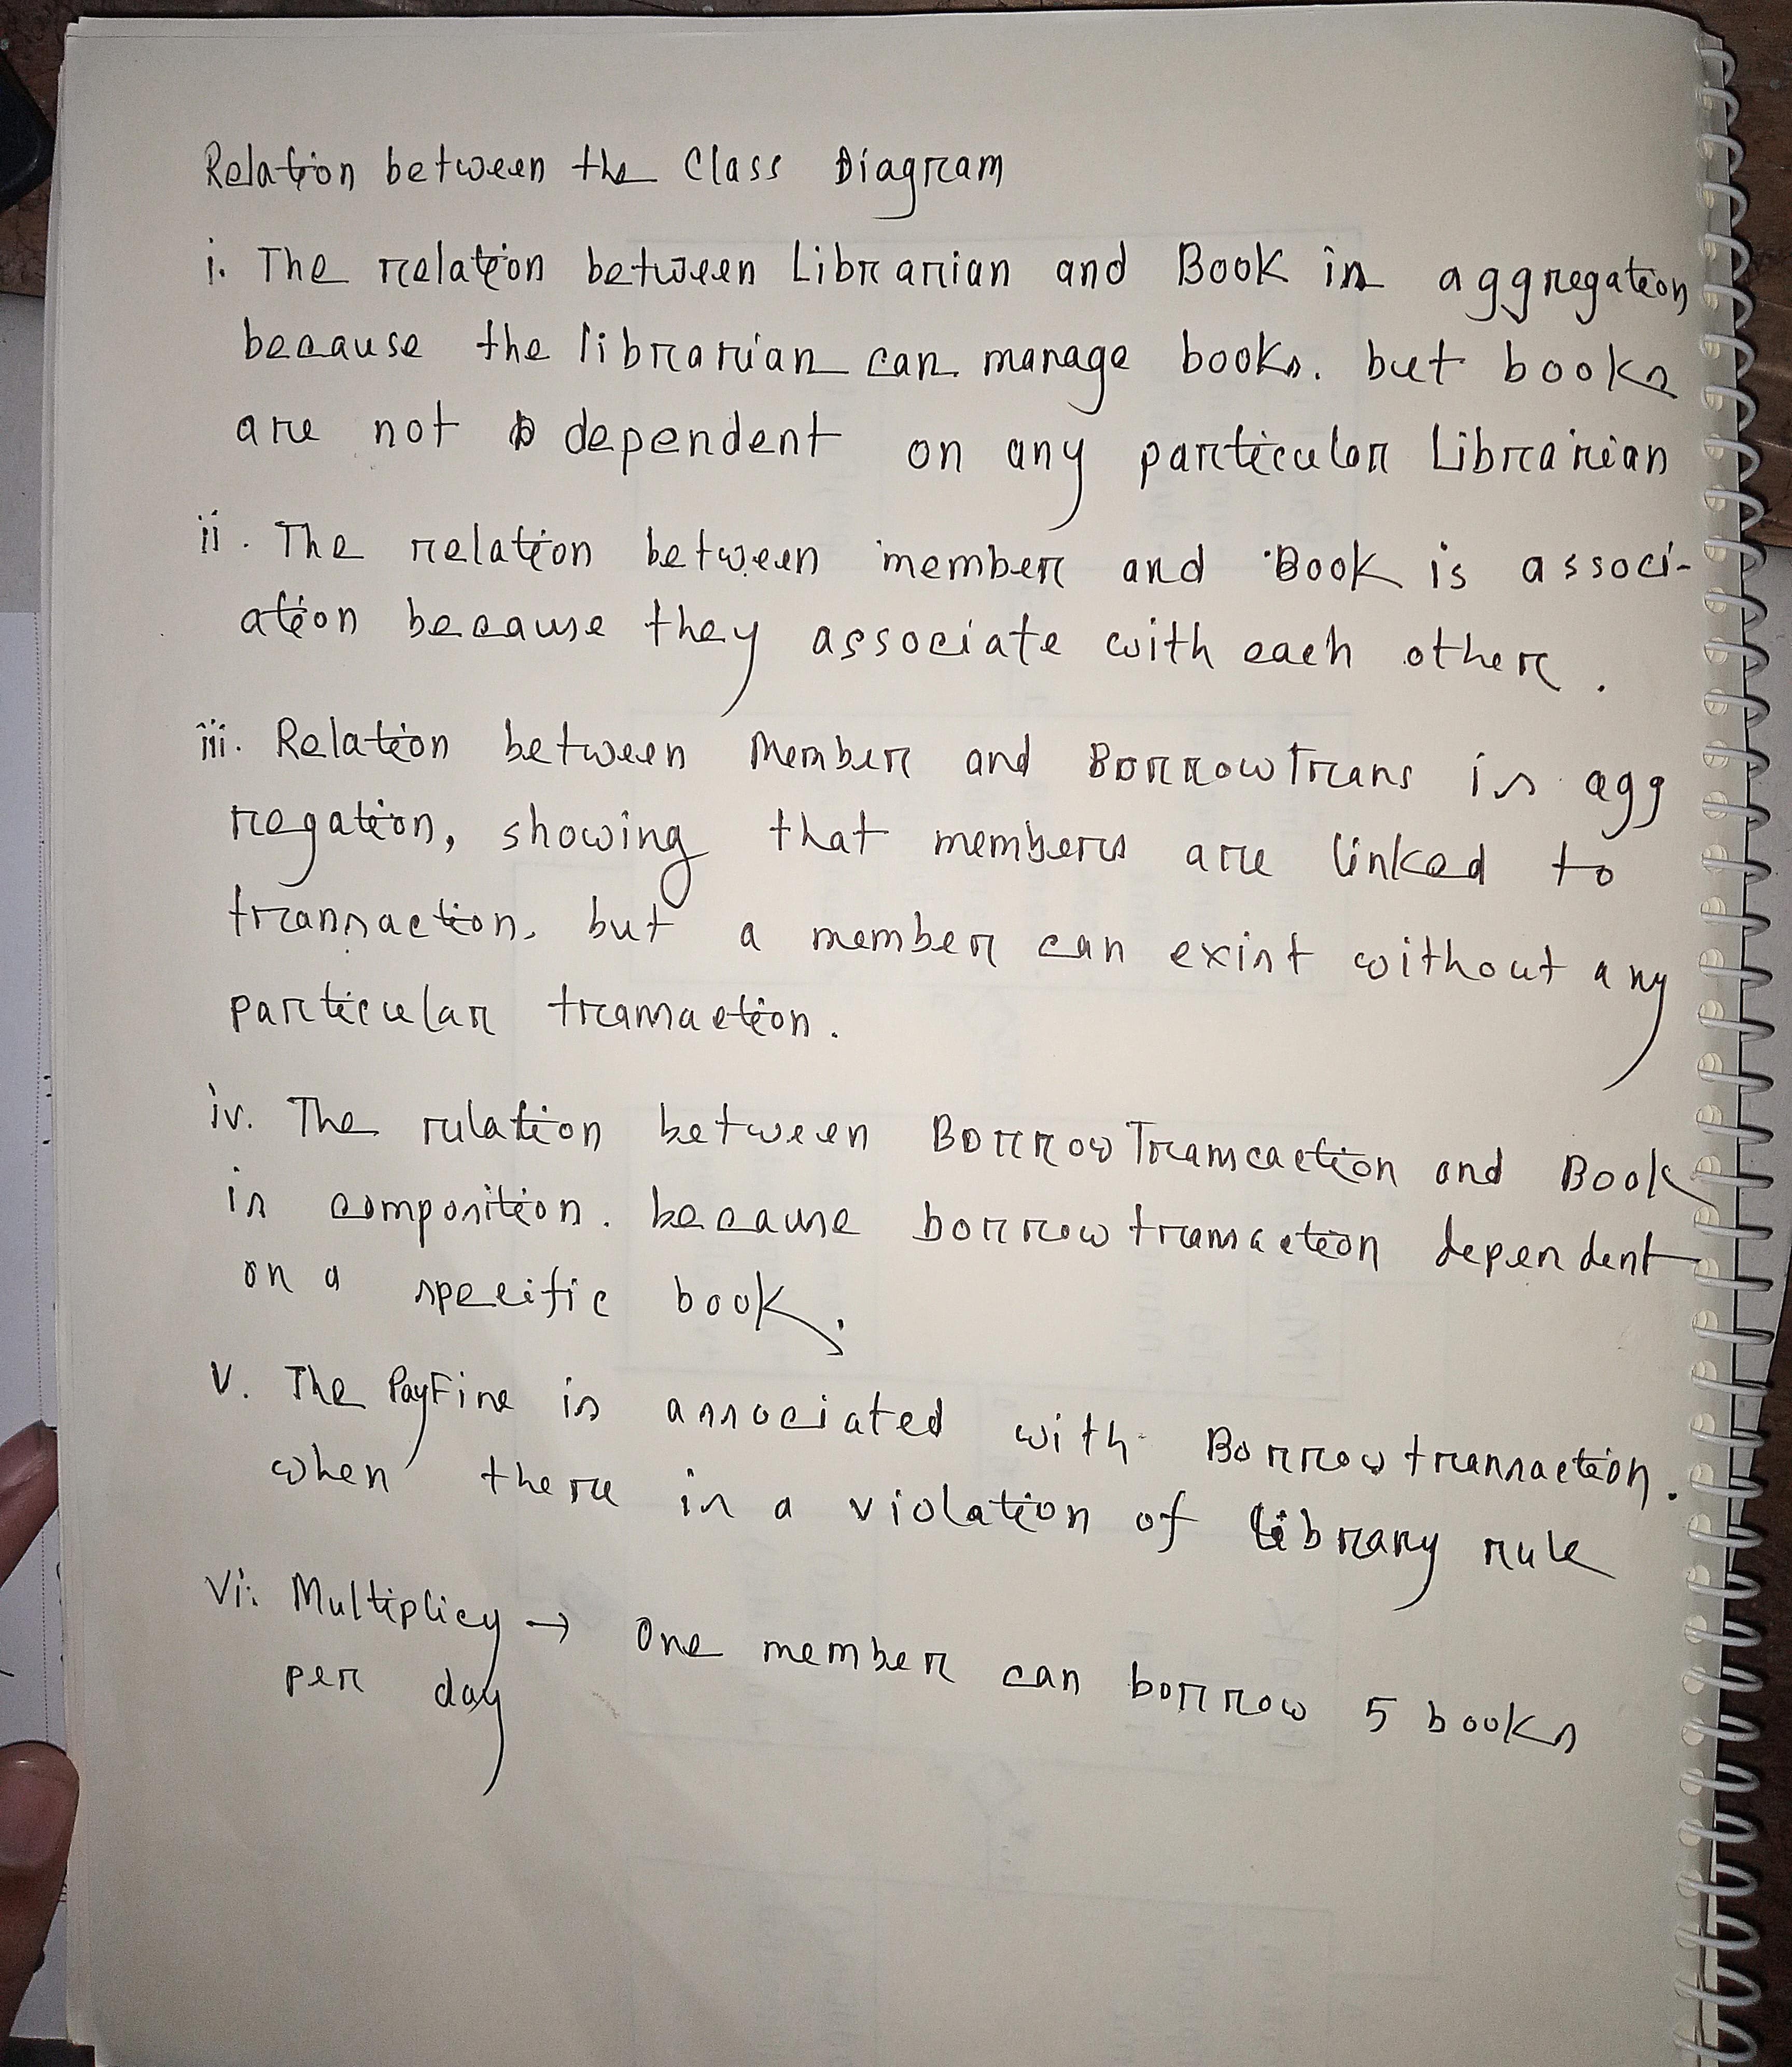 Relation between the Class Diagram
i. The relation between Librarian and Book is aggregation
because the librarian can manage books. but books
are not dependent on any particular Librarian
ii. The relation between member and Book is associ-
ation because they associate with each other.
iii. Relation between Member and BorrowTrans is agg
regation, showing that members are linked to
transaction, but a member can exist without any
particular transaction.
iv. The rulation between BorrowTramcaction and Book
is composition. because borrow transaction dependent
on a specific book.
v. The PayFine is associated with Borrow transaction.
when there is a violation of library rule
vi. Multiplicy → One member can borrow 5 books
per day